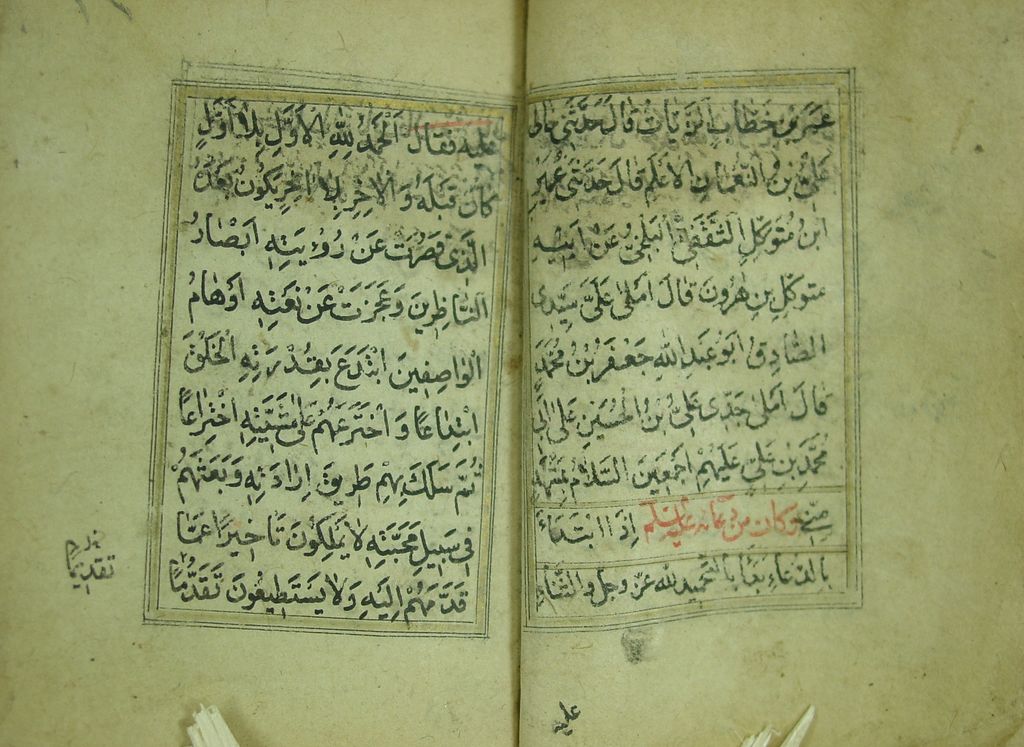 عمير بن خطاب الزيات قال حدثني خالي
علي بن النعمان الاعلم قال حدثني عمير
ابن متوكل الثقفي البلخي عن ابيه
متوكل بن هرون قال املى علي سيدي
الصادق ابو عبد الله جعفر بن محمد
قال املى جدي علي بن الحسين على ابي
محمد بن علي عليهم اجمعين السلام بمشهد
مني وكان من دعائه عليه السلم اذا ابتداء
بالدعاء بدا بالتحميد لله عز وجل والثناء
عليه
عليه فقال اَلْحَمْدُ لِلّٰهِ الْاَوَّلِ بِلَا اَوَّلٍ
كَانَ قَبْلَهُ وَ الْاٰخِرِ بِلَا اٰخِرٍ يَكُونُ بَعْدَهُ
الَّذِي قَصُرَتْ عَنْ رُؤْيَتِهِ اَبْصَارُ
النَّاظِرِينَ وَ عَجَزَتْ عَنْ نَعْتِهِ اَوْهَامُ
الْوَاصِفِينَ ابْتَدَعَ بِقُدْرَتِهِ الْخَلْقَ
ابْتِدَاعًا وَ اخْتَرَعَهُمْ عَلَى مَشِيَّتِهِ اخْتِرَاعًا
ثُمَّ سَلَكَ بِهِمْ طَرِيقَ اِرَادَتِهِ وَ بَعَثَهُمْ
فِي سَبِيلِ مَحَبَّتِهِ لَا يَمْلِكُونَ تَاْخِيرًا عَمَّا
قَدَّمَهُمْ اِلَيْهِ وَلَا يَسْتَطِيعُونَ تَقَدُّمًا
تقديما